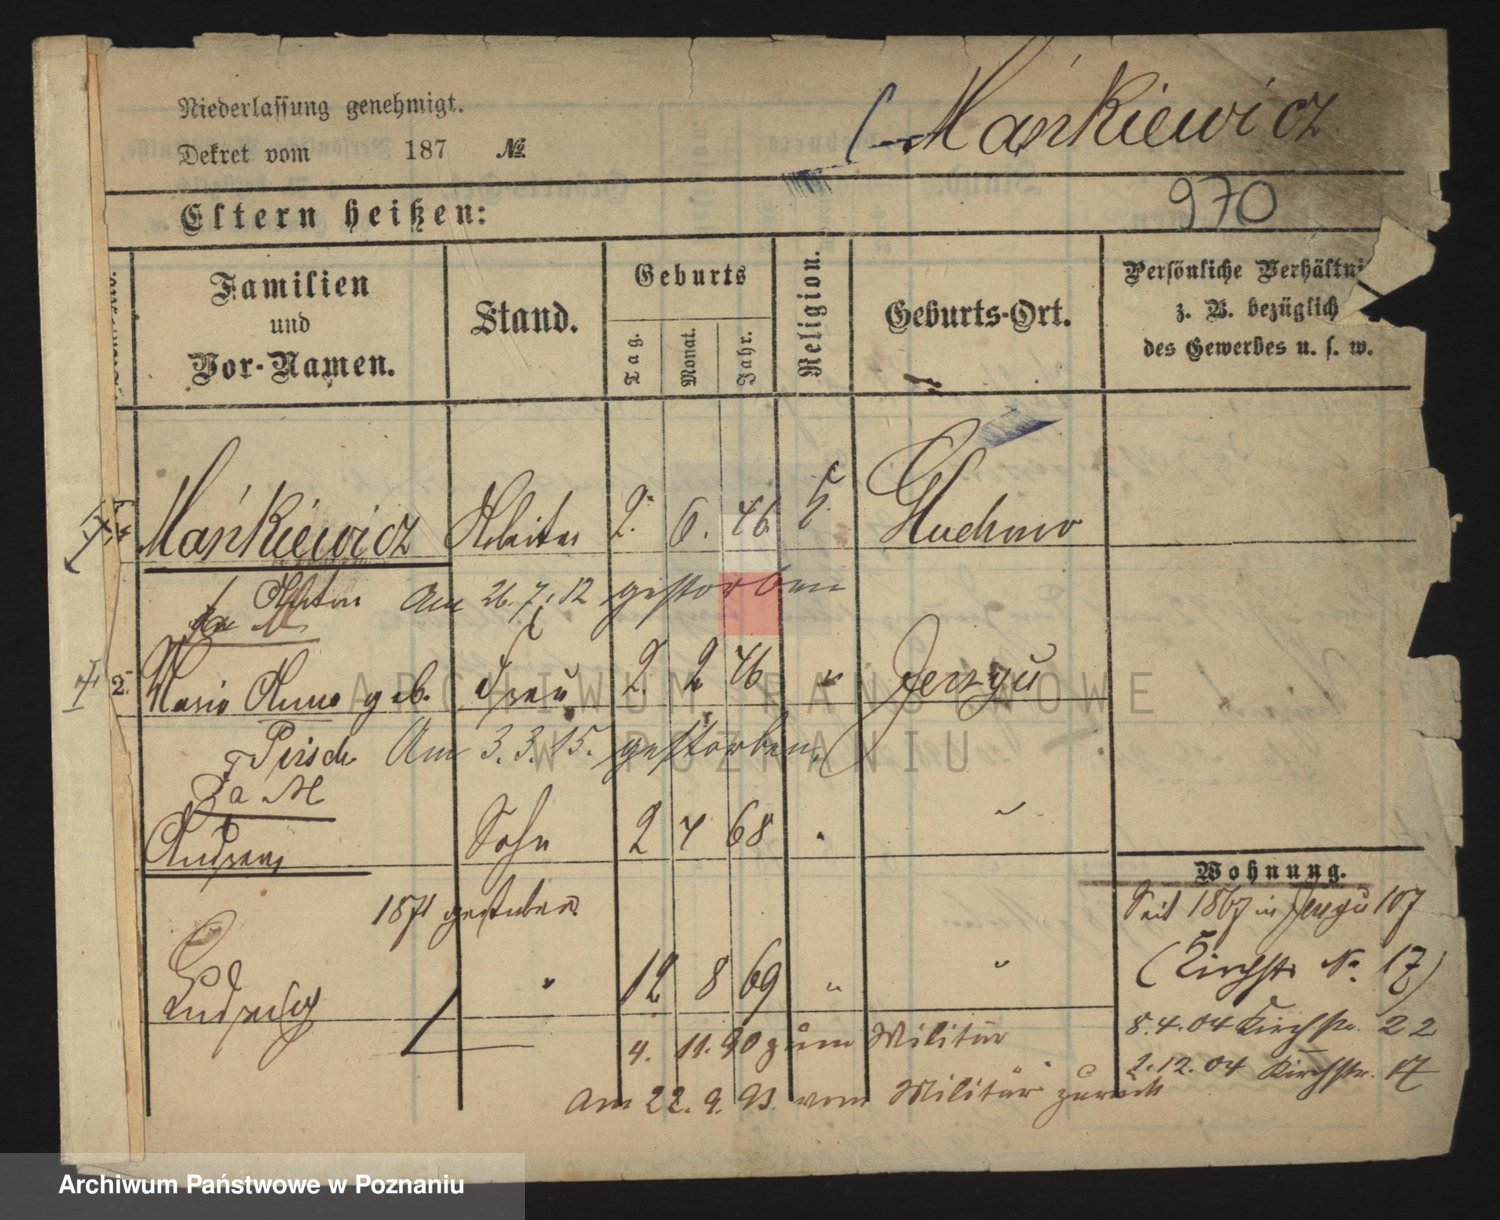 Mańkiewicz
Niederlassung genehmigt.
Dekret vom 187 №
970
Eltern heißen:
Familien und Vor-Namen.
Stand.
Geburts
Tag. Monat. Jahr.
Religion.
Geburts-Ort.
Persönliche Verhältni
z. B. bezüglich
des Gewerbes u. s. w.
Mańkiewicz Arbeiter 2. 6. 46 Gluchowo
Anton Am 26.7.12 gestorben
2. Maria Anna geb. Frau 2. 2 46 " Jerzyu
Pirsch Am 3.3.15. gestorben.
Andreas Sohn 2 4 68 " "
Wohnung.
1871 gestorben
Seit 1867 in Jerzyu 107
Ludwig " 12 8 69 " "
(Kirchstr No 17)
4. 11. 90 zum Militär
8.4.04 Kirchstr. 22
2.12.04 Kirchstr. 17
Am 22. 9. 93. vom Militär zurück
ARCHIWUM PAŃSTWOWE
W POZNANIU
Archiwum Państwowe w Poznaniu